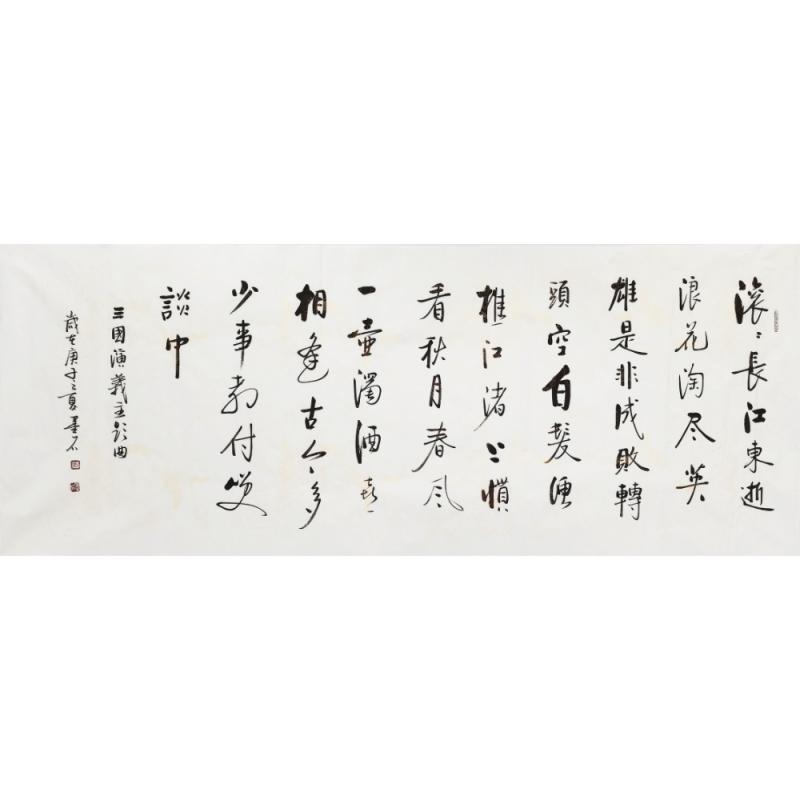 滚〻長江東逝
浪花淘尽英
雄是非成敗轉
頭空白髮漁
樵江渚上慣
看秋月春风
一壶濁酒喜
相逢古今多
少事都付咲
談中
三國演義主題曲
歲在庚子之夏墨石